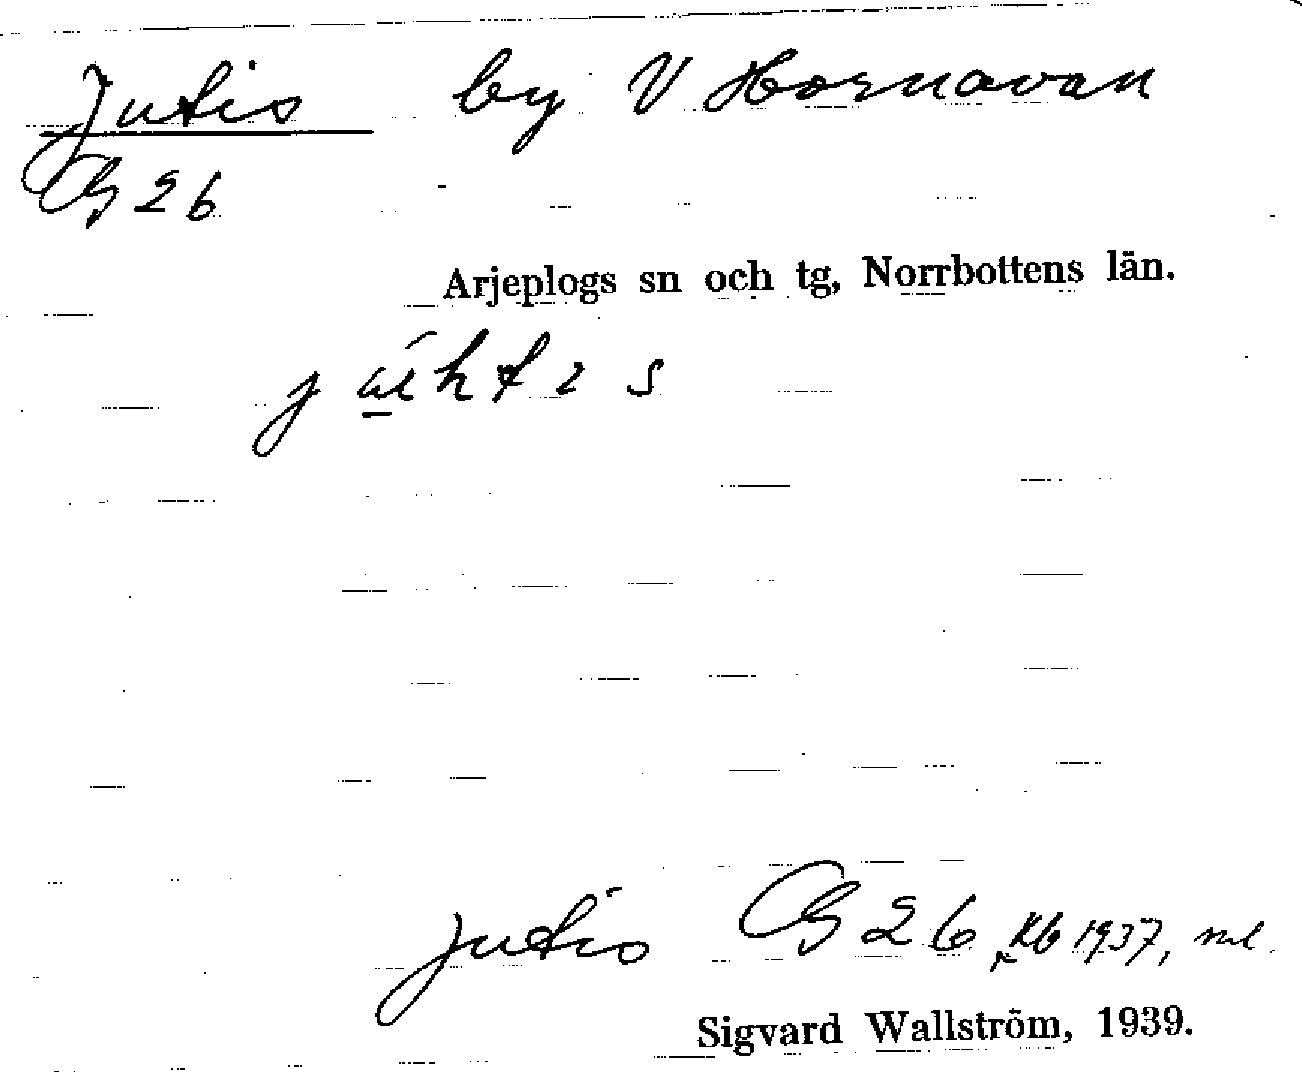 Jutis by V Hornavan
G 26
Arjeplogs sn och tg, Norrbottens län.
jutis G 26, Kb 1937, ml.
Sigvard Wallström, 1939.